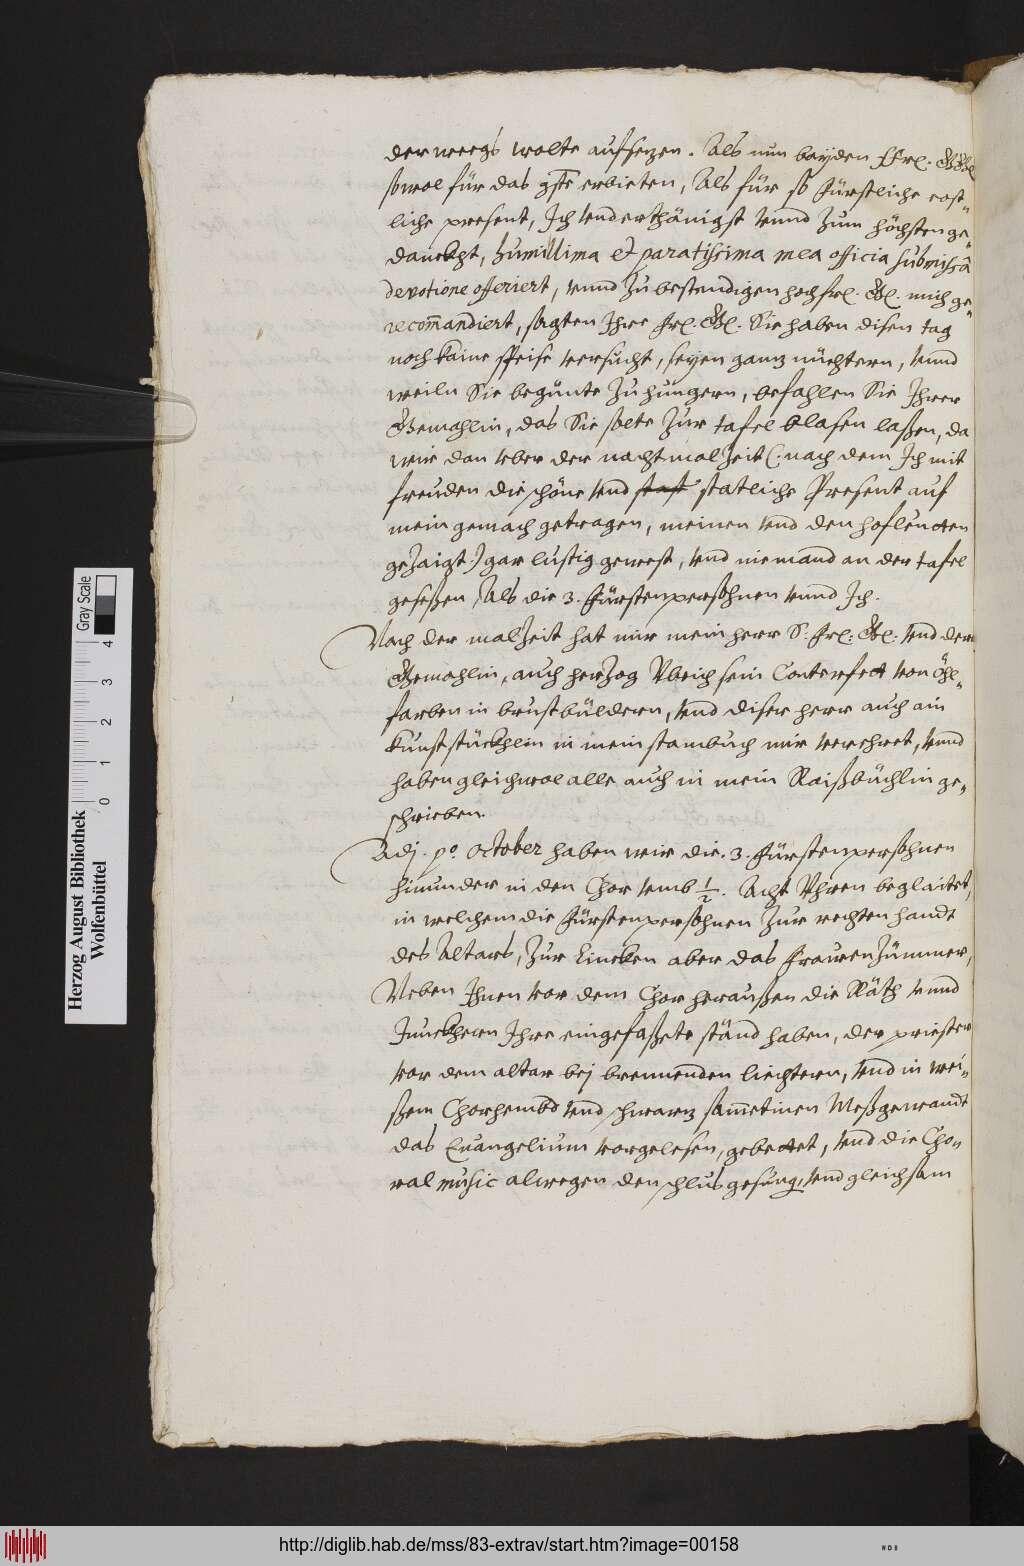 derweegs wolte aufsezen. Als nun bayden ffrl. GGl
sowol für das gste erbieten, Als für so Fürstliche cost=
liche present, Ich vnderthänigst vnnd zum höchsten ge=
danckht, humillima et paratissima mea officia submissâ
devotione offeriert, vnnd zu bestendigen hochfrl. Gl. mich ge=
recom̄andiert, sagten Ihre frl. Gl. Sie haben disen tag
noch kaine speise versucht, seyen ganz nüchtern, vnnd
weiln Sie begünte zu hungern, befahlen Sie Ihrer
Gemahlin, das Sie solte zur tafel blasen laßen, da
wir dan vber der nachtmalzeit (: nach dem Ich mit
freuden die schöne vnd stat statliche Present auf
mein gemach getragen, meinen vnd den hofleutten
gezaigt :) gar lustig gewest, vnd niemand an der tafel
geseßen, Als die 3. Fürstenpersohnen vnnd Ich.
Nach der malzeit hat mir mein herr S. frl. Gl. vnd dern
Gemahlin, auch herzog Vlrich sein Conterfett von öhl=
farben in brustbüldern, vnd diser herr auch ain
kunststückhlin in mein stambuch mir verehret, vnnd
haben gleichwol alle auch in mein Raißbüchlin ge=
schrieben.
Adj. po. October haben wir die. 3. Fürstenpersohnen
hinunder in den Chor vmb 1/2. Acht Vhren beglaitet,
in welchem die Fürstenpersohnen zur rechten handt
des Altars, zur Lincken aber das Frawenzümmer,
Neben Ihnen vor dem Chor heraußen die Räth vnnd
Junckhern Ihre eingefaßete ständ haben, der priester
vor dem altar bej brennenden liechtern, vnd in wei=
ßem Chorhembd vnd schwarz sam̄etinen Meßgewandt
das Euangelium vorgelesen, gebettet, vnd die Cho=
ral music alwegen den schlus gesung, vnd gleichsam
Herzog August Bibliothek
Wolfenbüttel
0 1 2 3 4
Gray Scale
http://diglib.hab.de/mss/83-extrav/start.htm?image=00158